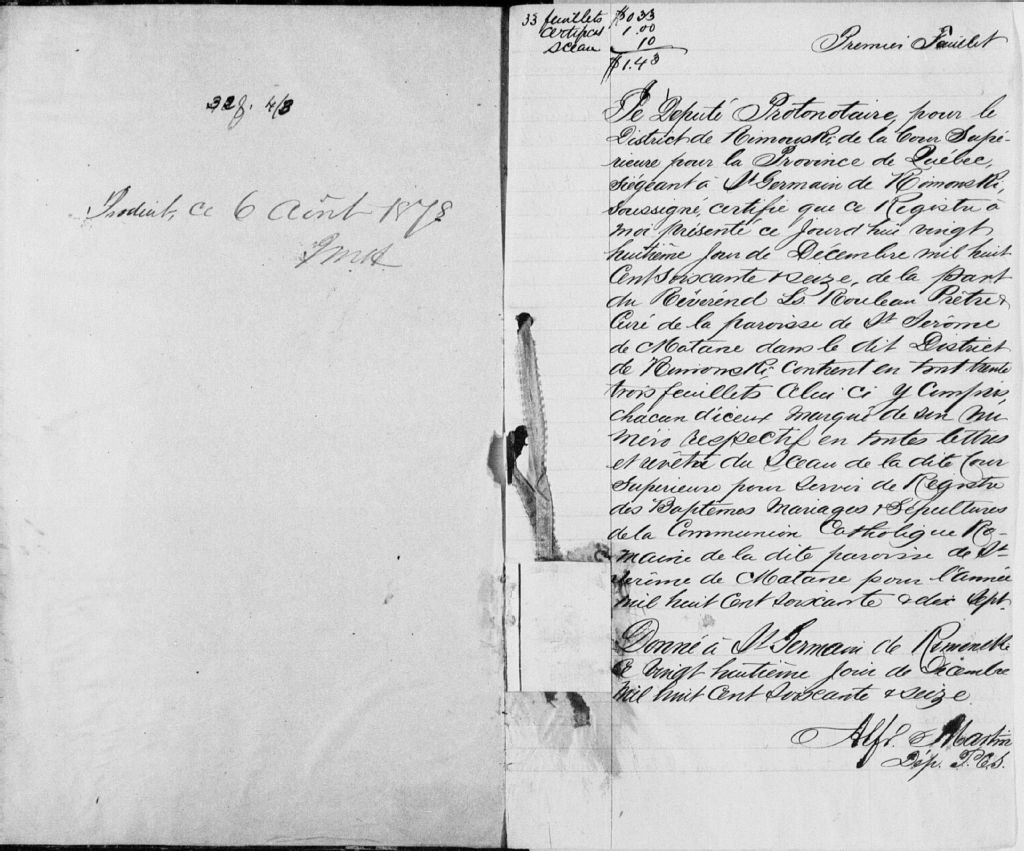 32f. 4/3
Produit, ce 6 Août 1878
33 feuillets $0 33
certificat 1.00
sceau 10
$1.43
Premier Feuillet
Je Député Protonotaire, pour le
District de Rimouski, de la Cour Supé-
rieure pour la Province de Québec,
siégeant à St Germain de Rimouski,
soussigné, certifie que ce Registre à
moi présenté ce jourd'hui vingt
huitième jour de Décembre mil huit
Cent soixante & seize, de la part
du Révérend Ls Rouleau Prêtre &
Curé de la paroisse de St Jerôme
de Matane dans le dit District
de Rimouski contient en tout trente
trois feuillets celui ci y compris,
chacun d'iceux marqué de son nu-
méro respectif en toutes lettres
et revêtu du Sceau de la dite Cour
Superieure pour servir de Régistre
des Baptêmes Mariages & Sépultures
de la Communion Catholique Ro-
maine de la dite paroisse de St
Jerôme de Matane pour l'année
mil huit Cent soixante & dix Sept.
Donné à St Germain de Rimouski
ce vingt huitième jour de Décembre
mil huit Cent soixante & seize
Alfd. Martin
Dép. P.C.S.